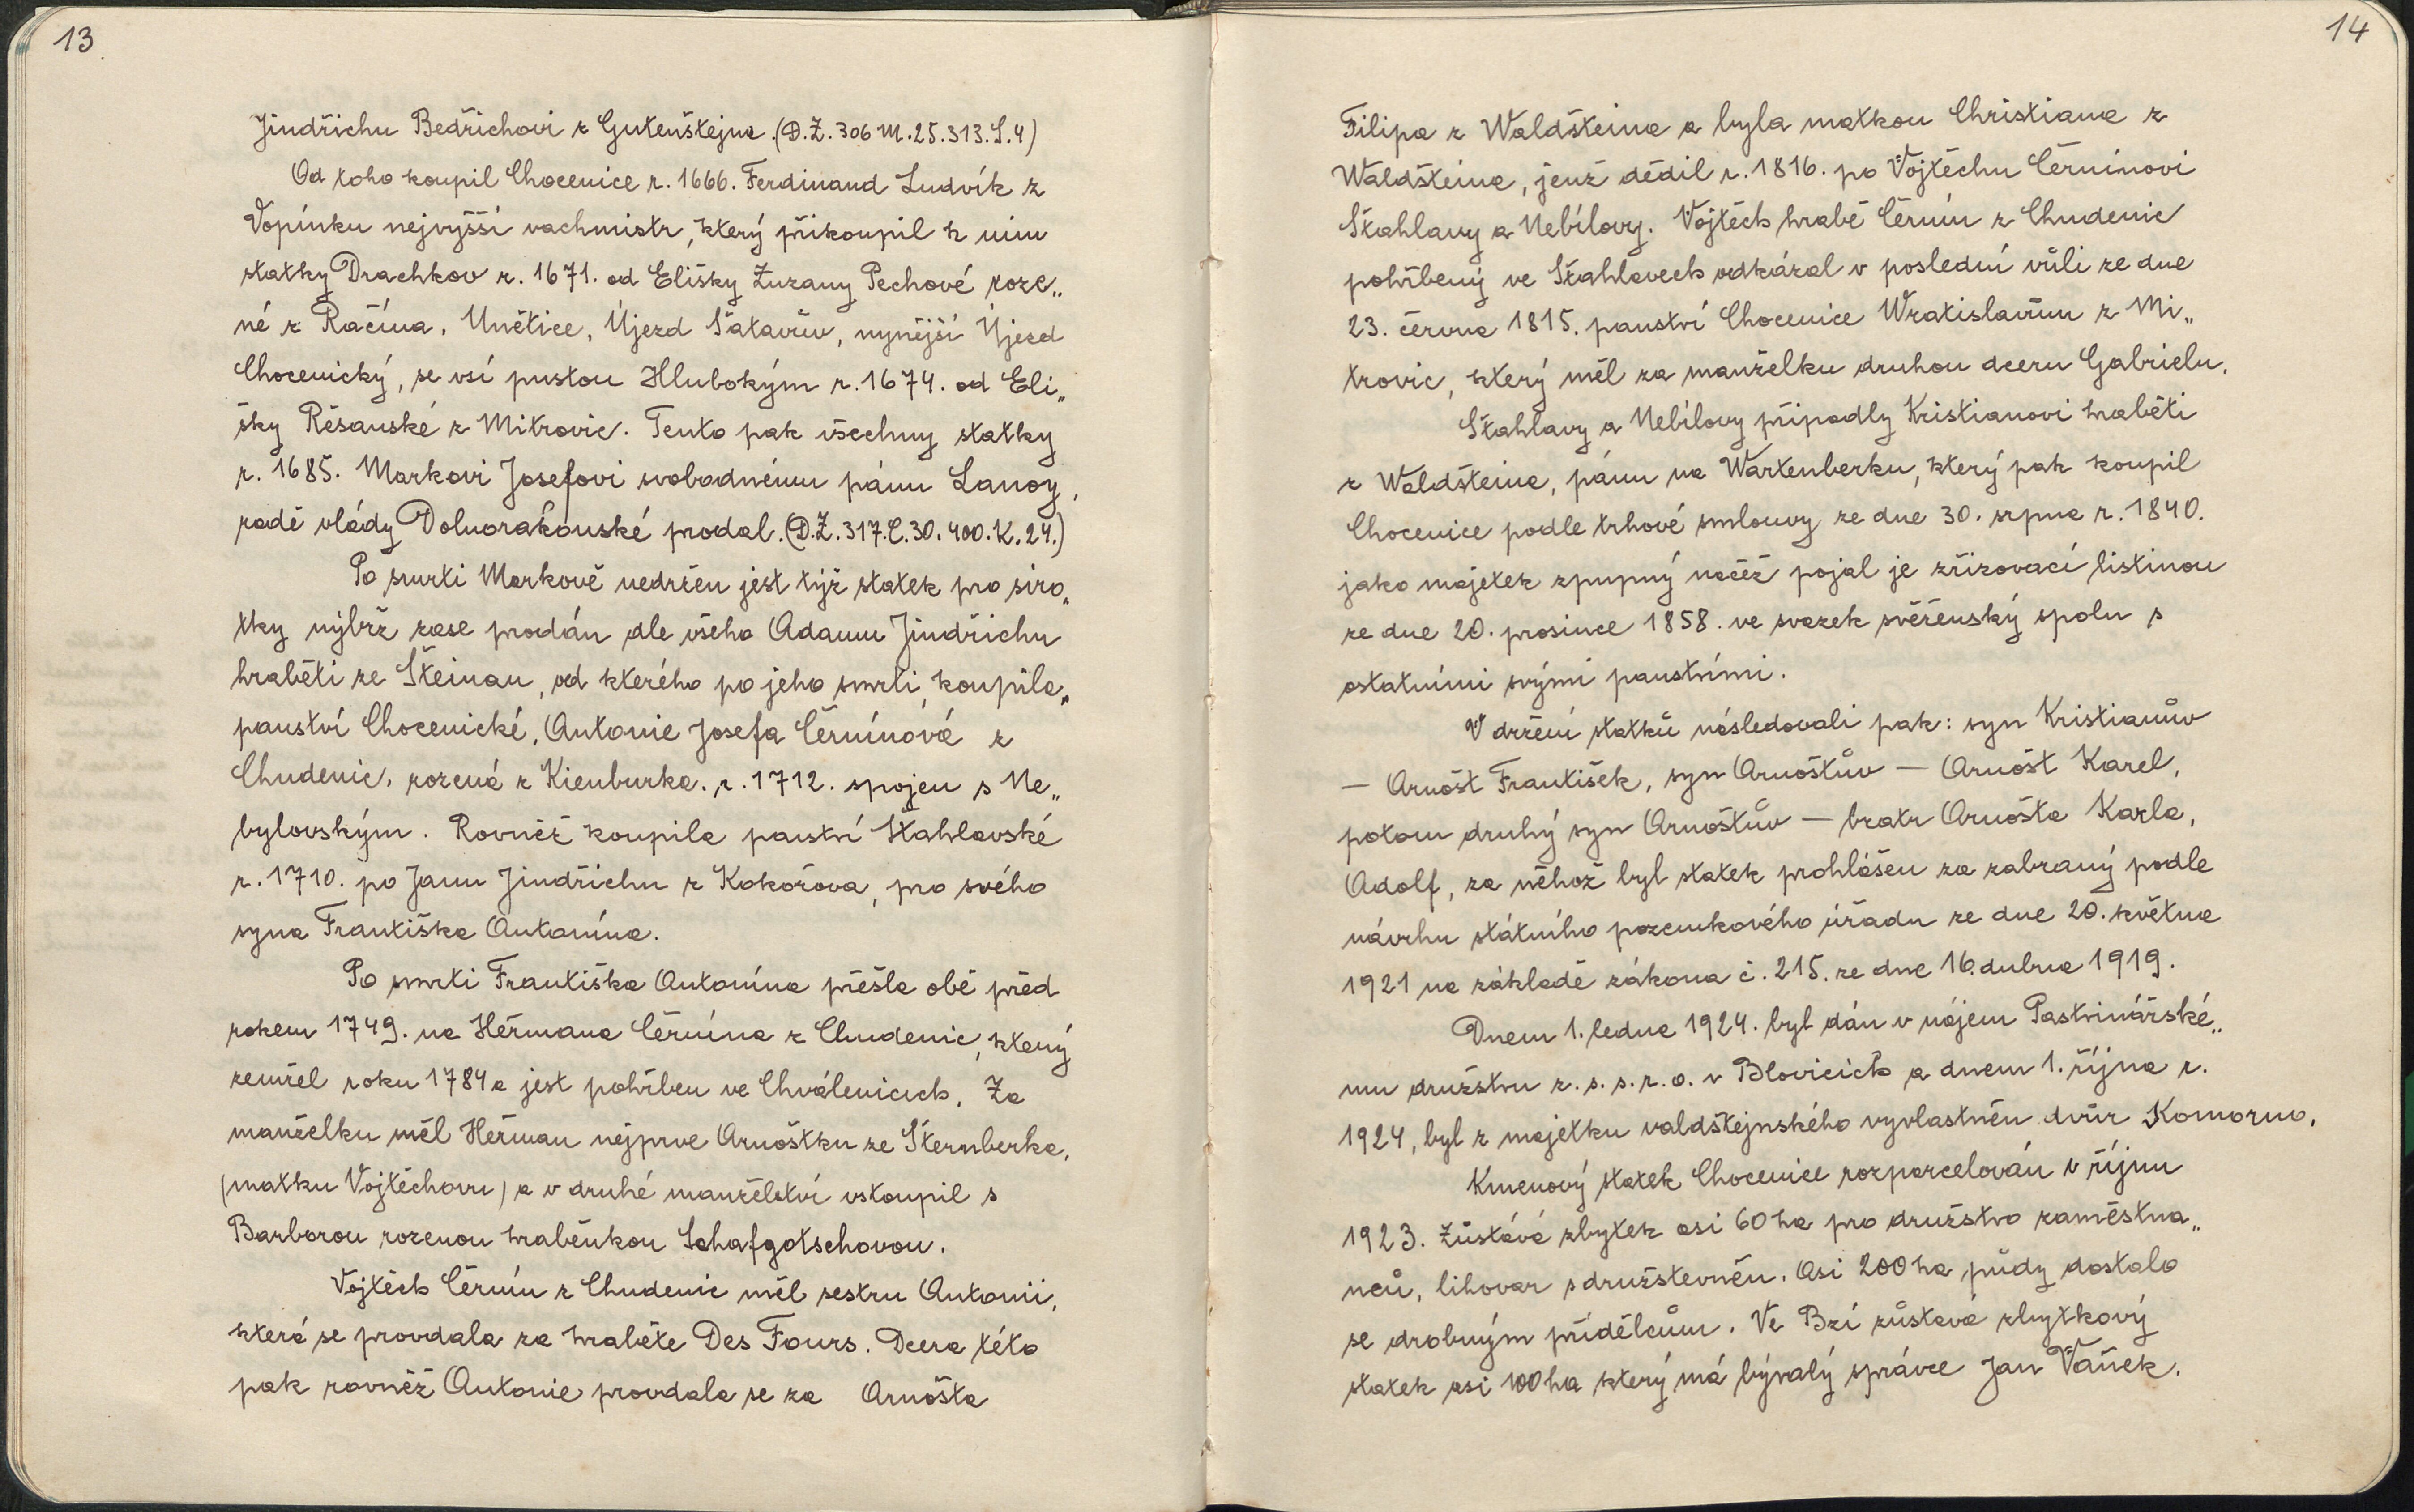 13
Jindřichu Bedřichovi z Gutenštejna. (D.Z. 306 M. 25. 313. S. 4)
Od toho koupil Chocenice r. 1666. Ferdinand Ludvík z
Vopínku nejvyšší vachmistr, který přikoupil k nim
statky Drachkov r. 1671. od Elišky Zuzany Pechové roze„
né z Račína, Unětice, Újezd Šatavův, nynější Újezd
Chocenický, se vsí pustou Hlubokým r. 1674. od Eli„
šky Řěsanské z Mitrovic. Tento pak všechny statky
r. 1685. Markovi Josefovi svobodnému pánu Lanoy,
radě vlády Dolnorakouské prodal. (D.Z. 317. C. 30. 400. K. 24.)
Po smrti Markově nedržen jest týž statek pro siro„
tky nýbrž zase prodán dle všeho Adamu Jindřichu
hraběti ze Šteinau, od kterého po jeho smrti, koupila„
panství Chocenické, Antonie Josefa Černínová z
Chudenic, rozená z Kienburka. r. 1712. spojen s Ne„
bylovským. Rovněž koupila panství Šťahlavské
r. 1710. po Janu Jindřichu z Kokořova, pro svého
syna Františka Antonína.
Po smrti Františka Antonína přešla obě před
rokem 1749. na Heřmana Černína z Chudenic, který
zemřel roku 1784 a jest pohřben ve Chválenicích. Za
manželku měl Heřman nejprve Arnoštku ze Šternberka,
(matku Vojtěchovu) a v druhé manželství vstoupil s
Barborou rozenou hraběnkou Schafgotschovou.
Vojtěch Černín z Chudenic měl sestru Antonii,
která se provdala za hraběte Des Fours. Dcera této
pak rovněž Antonie provdala se za Arnošta
14
Filipa z Waldšteina a byla matkou Christiana z
Waldšteina, jenž dědil r. 1816. po Vojtěchu Černínovi
Šťahlavy a Nebílovy. Vojtěch hrabě Černín z Chudenic
pohřbený ve Šťahlavech odkázal v poslední vůli ze dne
23. června 1815. panství Chocenice Wratislavům z Mi„
trovic, který měl za manželku druhou dceru Gabrielu.
Šťahlavy a Nebílovy připadly Kristianovi hraběti
z Waldšteina, pánu na Wartenberku, který pak koupil
Chocenice podle trhové smlouvy ze dne 30. srpna r. 1840.
jako majetek zpupný načež pojal je zřizovací listinou
ze dne 20. prosince 1858. ve svazek svěřenský spolu s
ostatními svými panstvími.
V držení statků následovali pak: syn Kristianův
— Arnošt František, syn Arnoštův — Arnošt Karel,
potom druhý syn Arnoštův — bratr Arnošta Karla,
Adolf, za něhož byl statek prohlášen za zabraný podle
návrhu státního pozemkového úřadu ze dne 20. května
1921 na základě zákona č. 215. ze dne 16. dubna 1919.
Dnem 1. ledna 1924. byl dán v nájem Pastvinářské„
mu družstvu z. s. s. r. o. v Blovicích a dnem 1. října r.
1924, byl z majetku valdštejnského vyvlastněn dvůr Komorno.
Kmenový statek Chocenice rozparcelován v říjnu
1923. Zůstává zbytek asi 60 ha pro družstvo zaměstna„
nců, lihovar sdružstevněn. Asi 200 ha půdy dostalo
se drobným přídělcům. Ve Bzí zůstává zbytkový
statek asi 100 ha který má bývalý správce Jan Vaňek.